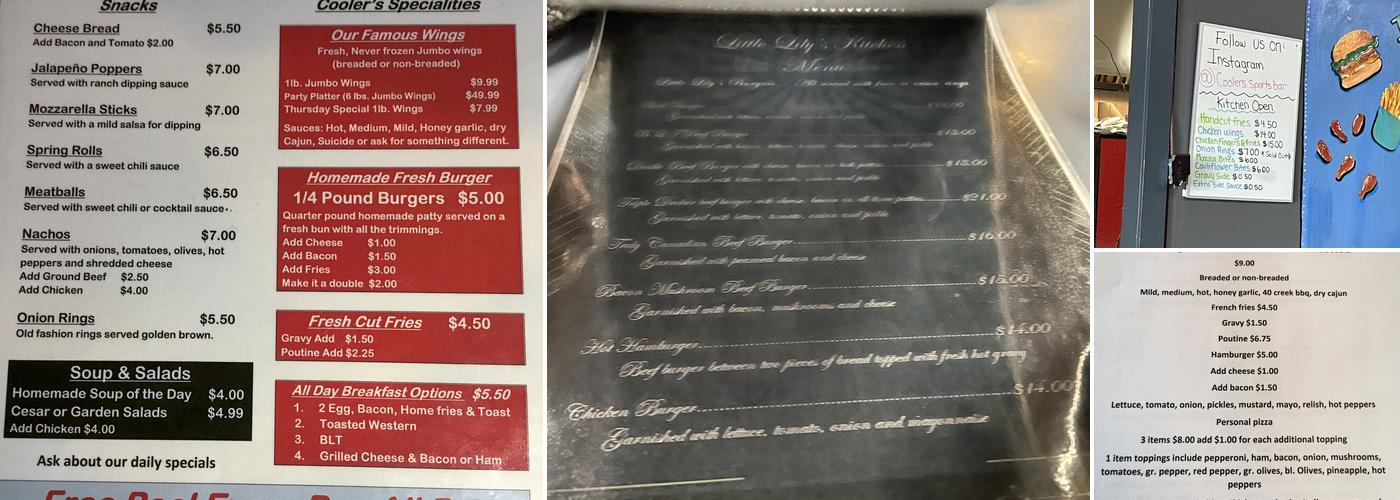 Snacks
Cheese Bread $5.50
Add Bacon and Tomato $2.00
Jalapeño Poppers $7.00
Served with ranch dipping sauce
Mozzarella Sticks $7.00
Served with a mild salsa for dipping
Spring Rolls $6.50
Served with a sweet chili sauce
Meatballs $6.50
Served with sweet chili or cocktail sauce
Nachos $7.00
Served with onions, tomatoes, olives, hot
peppers and shredded cheese
Add Ground Beef $2.50
Add Chicken $4.00
Onion Rings $5.50
Old fashion rings served golden brown.
Soup & Salads
Homemade Soup of the Day $4.00
Cesar or Garden Salads $4.99
Add Chicken $4.00
Ask about our daily specials
Cooler's Specialities
Our Famous Wings
Fresh, Never frozen Jumbo wings
(breaded or non-breaded)
1lb. Jumbo Wings $9.99
Party Platter (6 lbs. Jumbo Wings) $49.99
Thursday Special 1lb. Wings $7.99
Sauces: Hot, Medium, Mild, Honey garlic, dry
Cajun, Suicide or ask for something different.
Homemade Fresh Burger
1/4 Pound Burgers $5.00
Quarter pound homemade patty served on a
fresh bun with all the trimmings.
Add Cheese $1.00
Add Bacon $1.50
Add Fries $3.00
Make it a double $2.00
Fresh Cut Fries $4.50
Gravy Add $1.50
Poutine Add $2.25
All Day Breakfast Options $5.50
1. 2 Egg, Bacon, Home fries & Toast
2. Toasted Western
3. BLT
4. Grilled Cheese & Bacon or Ham
Little Lily's Kitchen
Menu
Little Lily's Burgers
$15.00
$15.00
Triple Decker beef burger with cheese, bacon on all three patties $21.00
Garnished with lettuce, tomato, onion and pickle
Truly Canadian Beef Burger $16.00
Garnished with peameal bacon and cheese
Bacon Mushroom Beef Burger $15.00
Garnished with bacon, mushrooms and cheese
Hot Hamburger $14.00
Beef burger between two pieces of bread topped with fresh hot gravy
Chicken Burger $14.00
Garnished with lettuce, tomato, onion and mayonnaise
Follow Us On
Instagram
@Coolers Sportsbar
Kitchen Open
Handcut fries $4.50
Chicken wings $14.00
Chicken Fingers & fries $15.00
Onion Rings $7.00 * Sold Out
Mozza Bites $6.00
Cauliflower Bites $6.00
Gravy Side $0.50
Extra Side Sauce $0.50
$9.00
Breaded or non-breaded
Mild, medium, hot, honey garlic, 40 creek bbq, dry cajun
French fries $4.50
Gravy $1.50
Poutine $6.75
Hamburger $5.00
Add cheese $1.00
Add bacon $1.50
Lettuce, tomato, onion, pickles, mustard, mayo, relish, hot peppers
Personal pizza
3 items $8.00 add $1.00 for each additional topping
1 item toppings include pepperoni, ham, bacon, onion, mushrooms,
tomatoes, gr. pepper, red pepper, gr. olives, bl. Olives, pineapple, hot
peppers